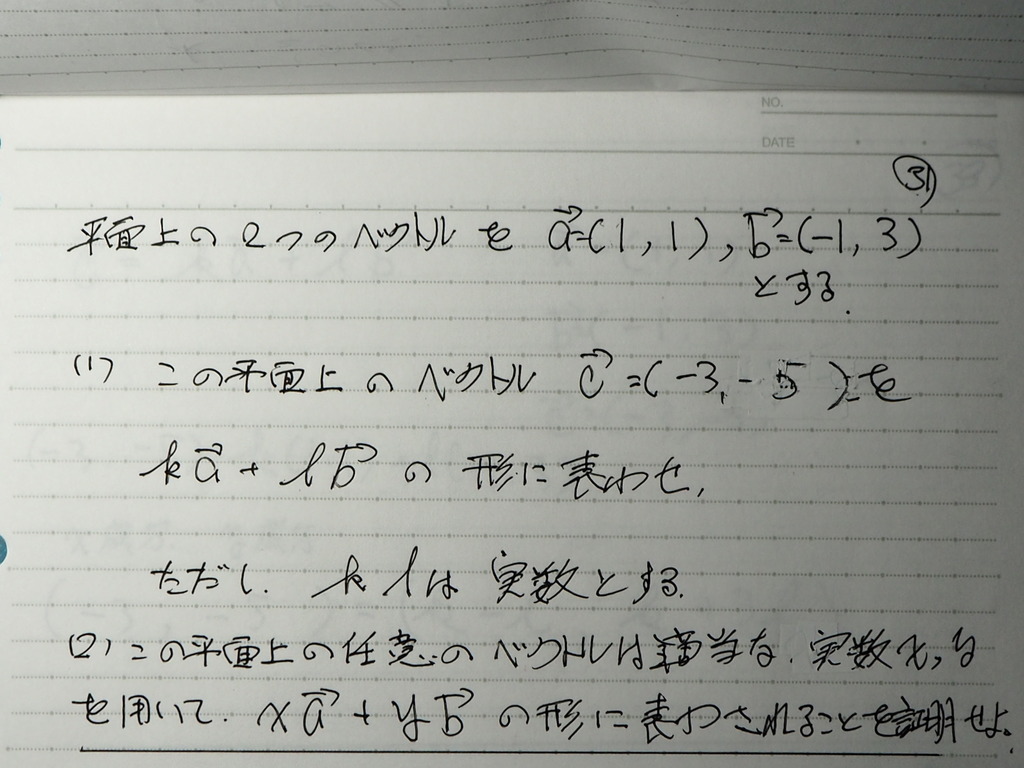 NO.
DATE
㉛
平面上の2つのベクトルを a⃗=(1, 1), b⃗=(-1, 3)
とする.
(1) この平面上のベクトル c⃗=(-3, -5)を
ka⃗ + lb⃗ の形に表わせ,
ただし. k lは実数とする.
(2) この平面上の任意のベクトルは適当な. 実数x, y
を用いて. xa⃗ + yb⃗ の形に表わされることを証明せよ.